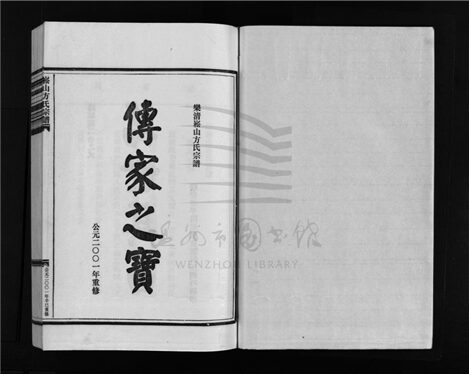 樂清崧山方氏宗譜
傳家之寶
公元二〇〇一年重修
崧山方氏宗譜
公元二〇〇一年辛巳重修
温州市图书馆
WENZHOU LIBRARY